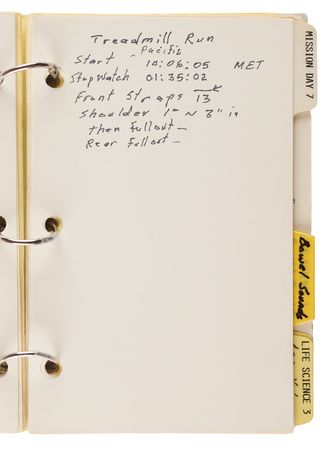 Treadmill Run
Pacific
Start - 10:06:05 MET
Stopwatch 01:35:02
Front Straps 13"
shoulder 1" ~ 3" in
then fullout -
Rear Fullout -
MISSION DAY 7
Bowel Sounds
LIFE SCIENCE 3